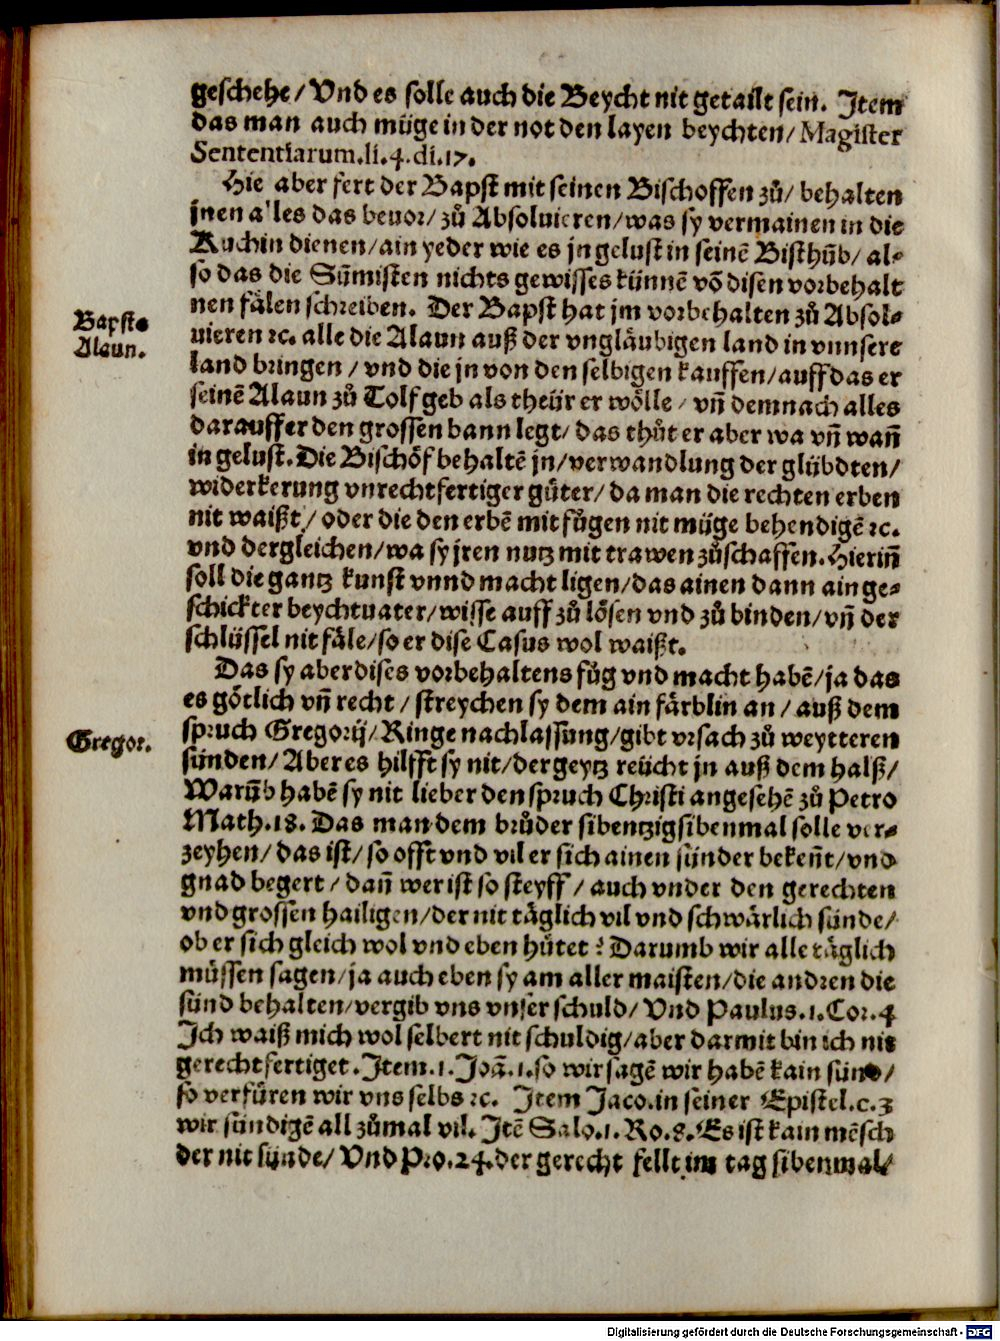 geschehe / Vnd es solle auch die Beycht nit getailt sein. Item
das man auch müge in der not den layen beychten / Magister
Sententiarum. li. 4. di. 17.
Hie aber fert der Bapst mit seinen Bischoffen zů / behalten
jnen alles das beuor / zů Absoluieren / was sy vermainen in die
Kuchin dienen / ain yeder wie es jn gelust in seinē Bisthūb / al-
so das die Sūmisten nichts gewisses künnē vō disen vorbehalt
nen fälen schreiben. Der Bapst hat jm vorbehalten zů Absol-
Bapsts
uieren ⁊c. alle die Alaun auß der vngläubigen land in vnnsere
Alaun.
land bringen / vnd die jn von den selbigen kauffen / auff das er
seinē Alaun zů Tolf geb als theür er wölle / vn̄ demnach alles
darauff er den grossen bann legt / das thůt er aber wa vn̄ wan̄
in gelust. Die Bischöf behaltē jn / verwandlung der glübdten /
widerkerung vnrechtfertiger güter / da man die rechten erben
nit waißt / oder die den erbē mit fůgen nit müge behendigē ⁊c.
vnd dergleichen / wa sy jren nutz mit trawen zůschaffen. Hierin̄
soll die gantz kunst vnnd macht ligen / das ainen dann ain ge-
schickter beychtuater / wisse auff zů lösen vnd zů binden / vn̄ der
schlüssel nit fäle / so er dise Casus wol waißt.
Das sy aber dises vorbehaltens fůg vnd macht habē / ja das
es götlich vn̄ recht / streychen sy dem ain färblin an / auß dem
Gregor.
spruch Gregorij / Ringe nachlassung / gibt vrsach zů weytteren
sünden / Aber es hilfft sy nit / der geytz reücht jn auß dem halß /
Warūb habē sy nit lieber den spruch Christi angesehē zů Petro
Math. 18. Das man dem brůder sibentzigsibenmal solle ver-
zeyhen / das ist / so offt vnd vil er sich ainen sünder beken̄t / vnd
gnad begert / dan̄ wer ist so steyff / auch vnder den gerechten
vnd grossen hailigen / der nit täglich vil vnd schwärlich sünde /
ob er sich gleich wol vnd eben hůtet ? Darumb wir alle täglich
müssen sagen / ja auch eben sy am aller maisten / die andren die
sünd behalten / vergib vns vnser schuld / Vnd Paulus. 1. Cor. 4
Ich waiß mich wol selbert nit schuldig / aber darmit bin ich nit
gerechtfertiget. Item. 1. Joā. 1. so wir sagē wir habē kain sünd /
so verfüren wir vns selbs ⁊c. Item Jaco. in seiner Epistel. c. 3
wir sündigē all zůmal vil. Itē Salo. 1. Ro. 8. Es ist kain mēsch
der nit sünde / Vnd Pro. 24. der gerecht fellt im tag sibenmal /
Digitalisierung gefördert durch die Deutsche Forschungsgemeinschaft - DFG